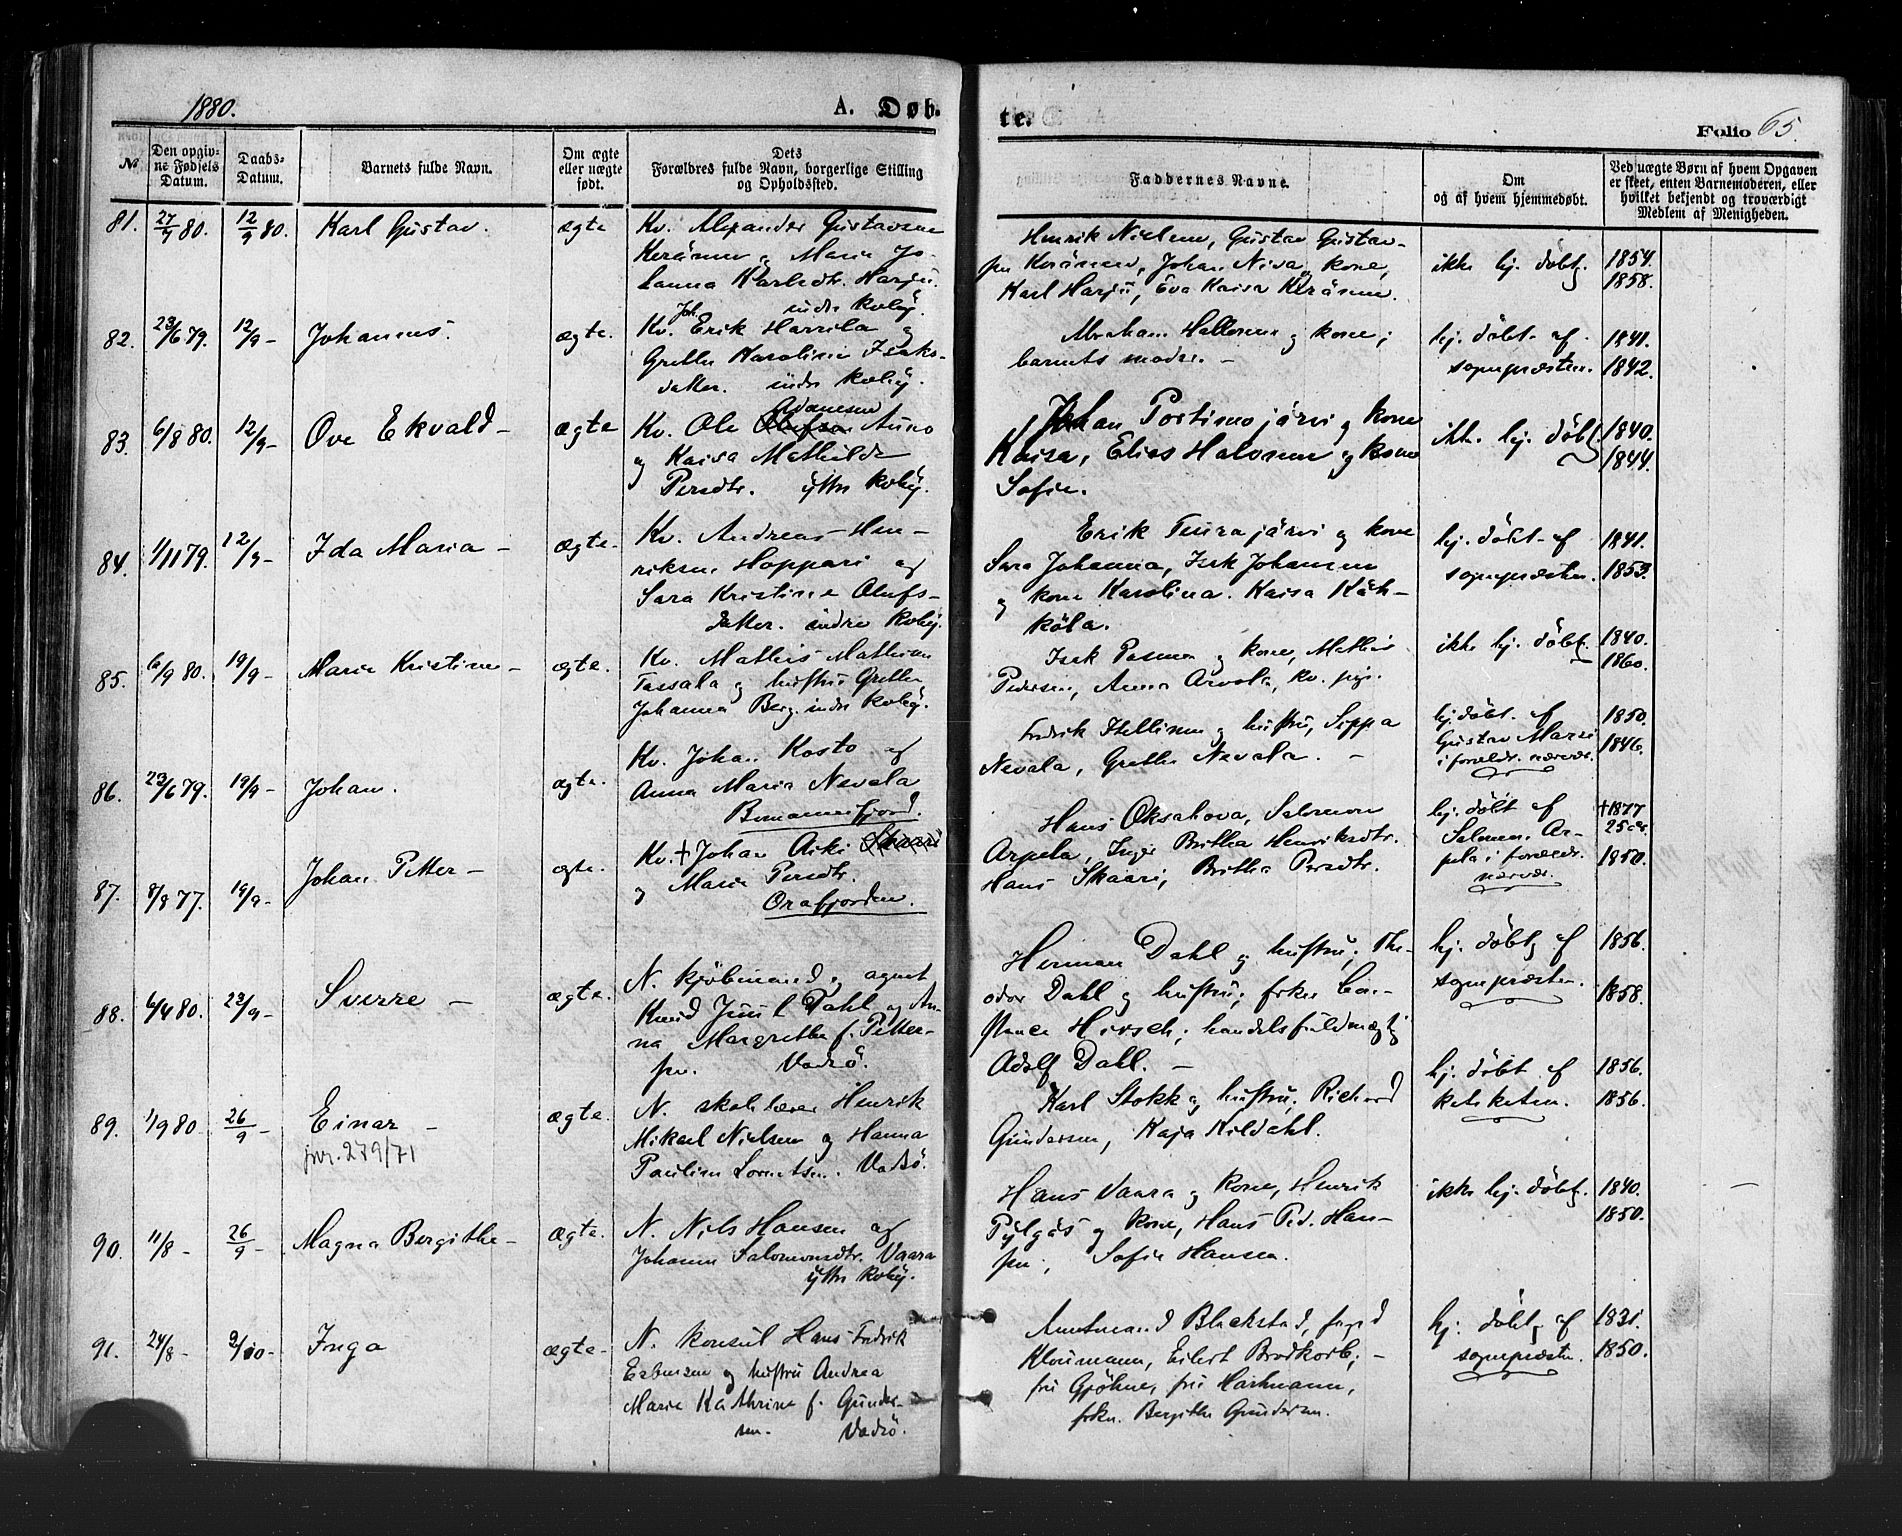 1880.
A. Døb-
te.
Folio 65.
№
Den opgiv-
ne Fødsels
Datum.
Daabs-
Datum.
Barnets fulde Navn.
Om ægte
eller uægte
født.
Dets
Forældres fulde Navn, borgerlige Stilling
og Opholdssted.
Faddernes Navne.
Om
og af hvem hjemmedøbt.
Ved uægte Børn af hvem Opgaven
er skeet, enten Barnemoderen, eller
hvilket bekjendt og troværdigt
Medlem af Menigheden.
81. 27/7 80. 12/9 80. Karl Gustav. ægte
Kv. Alexander Gustavsen
Keränen og Maria Jo-
hanna Karlsdtr. Harju.
indre kvby.
Henrik Nielsen, Gustav Gustav-
sen Keränen, Johan Niva og kone,
Karl Harju, Eva Kaisa Keränen.
ikke hj. døbt.
1854.
1858.
82. 23/6 79. 12/9 - Johannes. ægte.
Kv. Joh. Erik Harrila og
Grethe Karoline Isaks-
datter. indre kvby.
Abraham Hallonen og kone;
barnets moder. -
hj. døbt af
sognepræsten.
1841.
1842.
83. 6/8 80. 12/9 - Ove Ekvald - ægte
Kv. Ole Olufsen Adamsen Auno
og Kaisa Mathilde
Persdtr. yttre kvby.
Johan Portimojärvi og kone
Kaisa, Elias Halonen og kone
Sofie.
ikke hj. døbt.
1840.
1844.
84. 1/11 79. 12/9 - Ida Maria - ægte.
Kv. Andreas Hen-
riksen Hoppari og
Sara Kristine Olufs-
datter. indre kvby.
Erik Tuurajärvi og kone
Sara Johanna, Isak Johansen
og kone Karolina. Kaisa Käh-
köla.
hj. døbt af
sognepræsten.
1841.
1853.
85. 6/9 80. 19/9 - Maria Kristine - ægte.
Kv. Mathis Mathisen
Tassala og hustru Grethe
Johanna Berg. indre kvby.
Isak Pasma og kone, Mathis
Pedersen, Anna Arvola, kv. pige.
ikke hj. døbt.
1840.
1860.
86. 23/6 79. 19/9 - Johan. ægte.
Kv. Johan Kosto og
Anna Maria Nevala
Bomannsfjord.
Fredrik Hellinen og hustru, Seppa
Nevala, Grethe Nevala. -
hj. døbt af
Gustav Marsi
i foreldr. nærvær.
1850.
1846.
87. 8/8 77. 19/9 - Johan Petter - ægte.
Kv. + Johan Aiki Skaari
og Maria Persdtr.
Orafjorden.
Hans Oksahova, Salomon
Arpela, Inger Britha Henriksdtr.
Hans Skaari, Britha Persdtr.
hj. døbt af
Salomon Ar-
pela i forældr.
nærvær.
+1877
25 år.
1850.
88. 6/4 80. 23/9 - Sverre - ægte.
N. kjøbmand og agent
Knud Juul Dahl og An-
na Margrethe f. Petter-
sen. Vadsö.
Herman Dahl og hustru; The-
odor Dahl og hustru; frken Con-
stance Hirsch; handelsfuldmægtig
Adolf Dahl. -
hj. døbt af
sognepræsten.
1856.
1858.
89. 1/9 80. 26/9 - Einar - ægte.
jnr. 279/71
N. skolelærer Henrik
Mikael Nielsen og Hanna
Pauline Lorentsen. Vadsö.
Karl Stokk og hustru; Richard
Gundersen, Kaja Kildahl.
hj. døbt af
kateketen.
1856.
1856.
90. 11/8 - 26/9 - Magna Bergithe - ægte.
N. Nils Hansen og
Johanne Salomonsdtr. Vaara
yttre kvby.
Hans Vaara og kone, Henrik
Pylgäs og kone, Hans Ped. Han-
sen, Sofie Hansen.
ikke hj. døbt.
1840.
1850.
91. 24/8 - 2/10 - Inga ægte -
N. konsul Hans Fredrik
Esbensen og hustru Andrea
Marie Kathrine f. Gunder-
sen. Vadsö.
Amtmand Blackstad, foged
Kloumann, Eilert Brodkorb; -
fru Gjöhne, fru Harkmann,
frkn. Bergithe Gundersen.
hj. døbt af
sognepræsten.
1831.
1850.